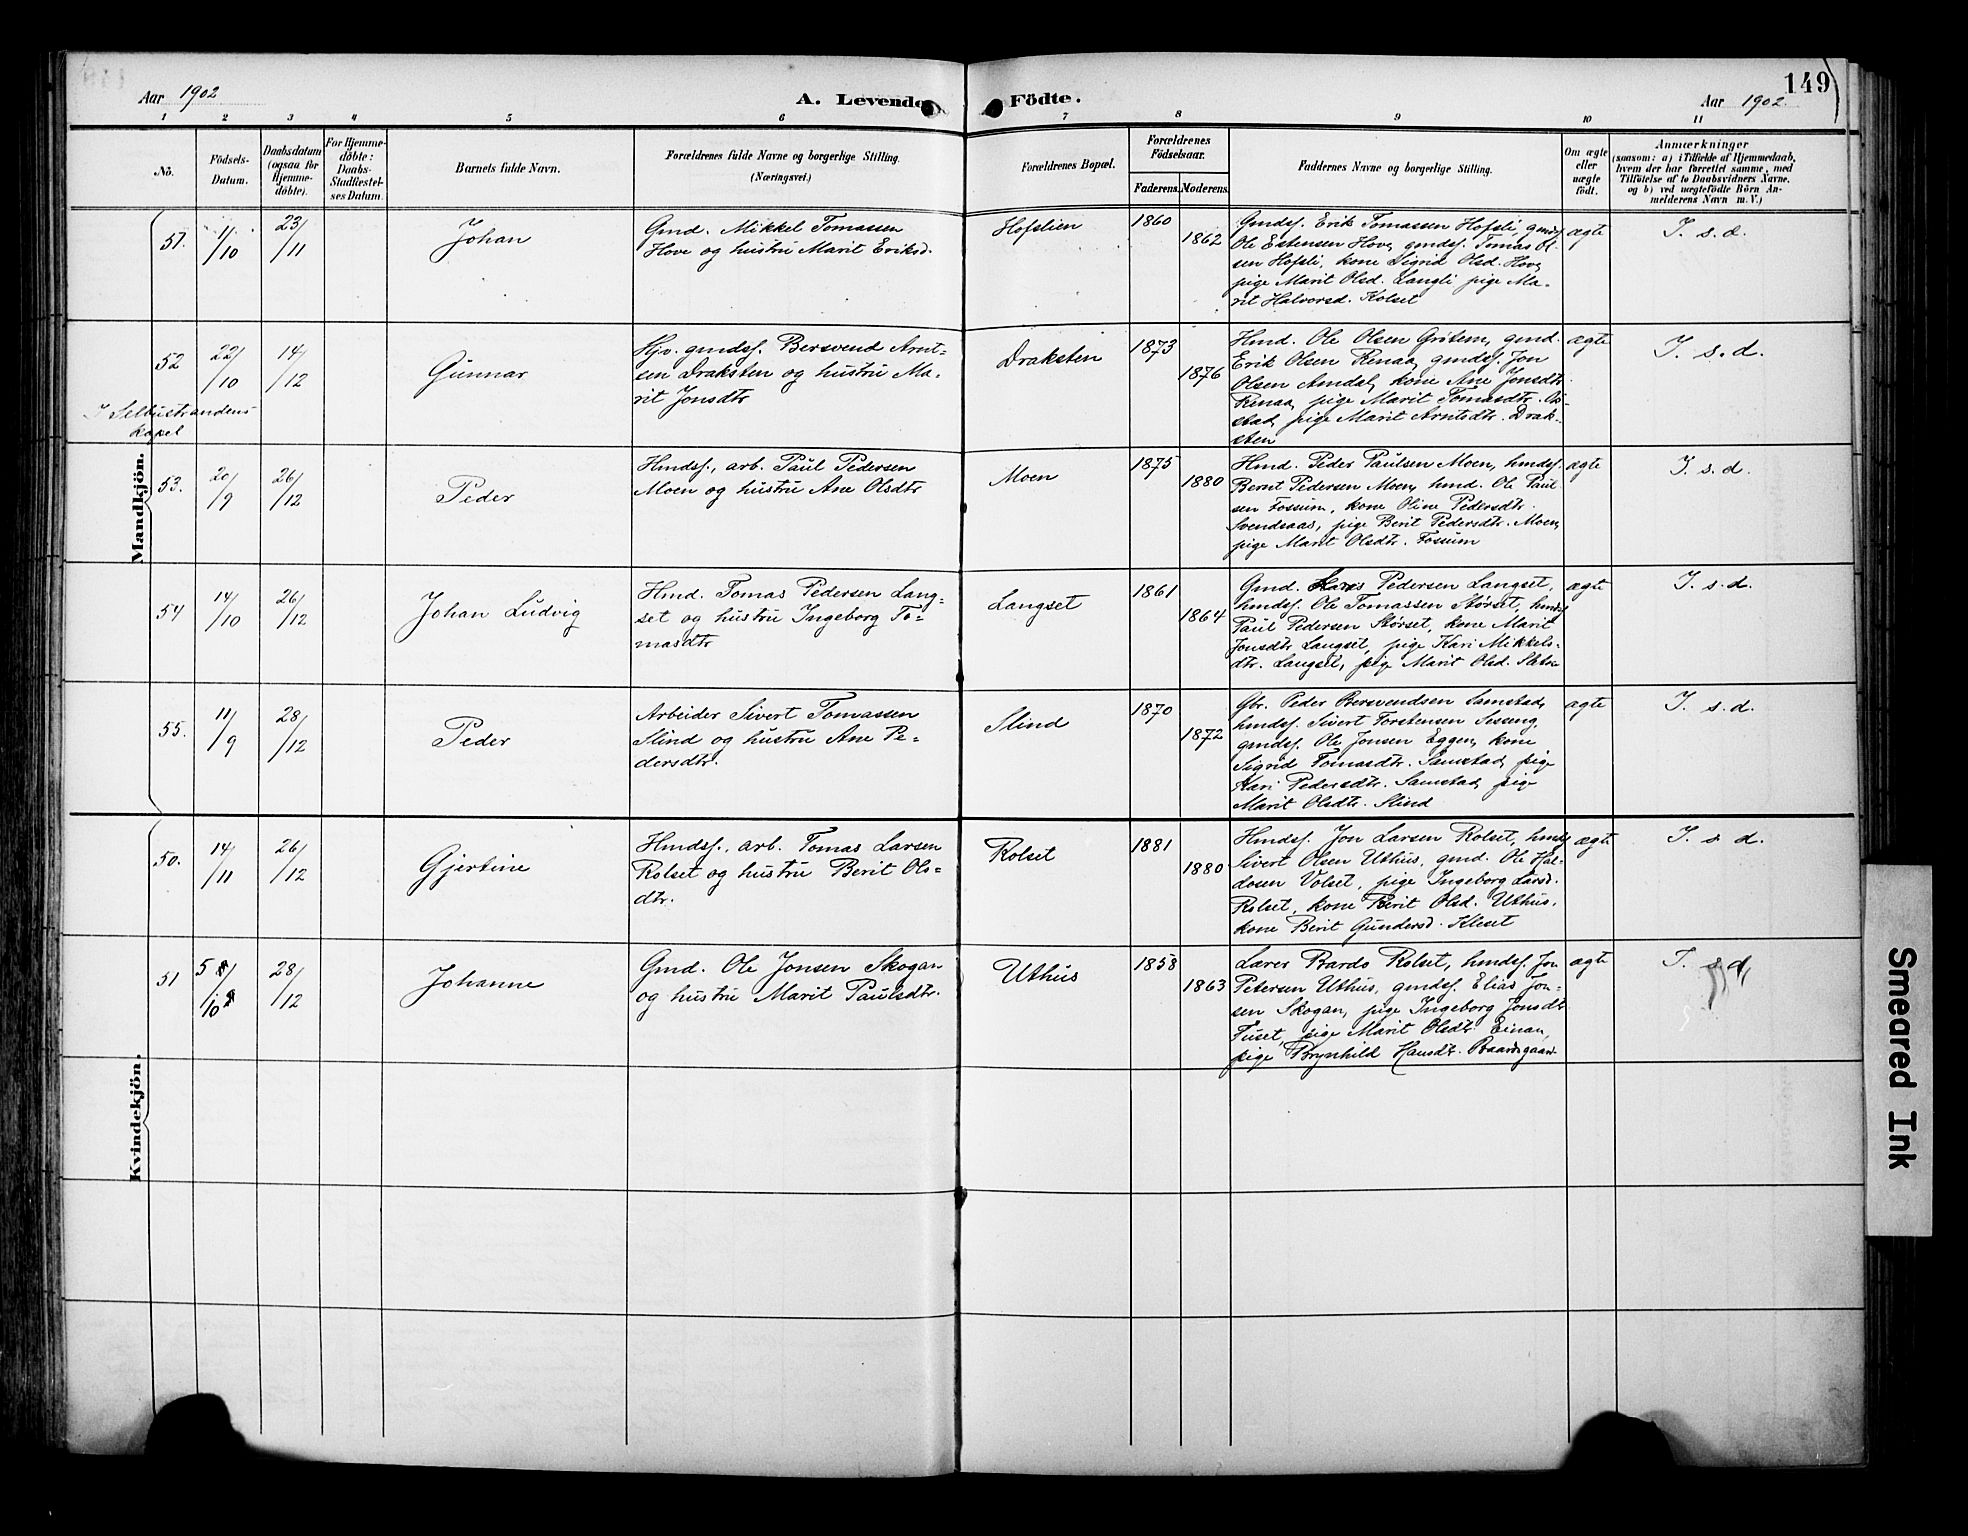 149
Aar 1902
A. Levende Födte.
Aar 1902.
1 2 3 4 5 6 7 8 9 10 11
No.
Födsels-
Datum.
Daabsdatum
(ogsaa for
Hjemme-
döbte).
For Hjemme-
döbte:
Daabs-
Stadfæstel-
ses Datum.
Barnets fulde Navn.
Forældrenes fulde Navne og borgerlige Stilling.
(Næringsvei.)
Forældrenes Bopæl.
Forældrenes
Födselsaar.
Faderens.
Moderens.
Faddernes Navne og borgerlige Stilling.
Om ægte
eller
uægte
født.
Anmærkninger
(saasom: a) i Tilfælde af Hjemmedaab,
hvem der har forrettet samme, med
Tilföielse af to Daabsvidners Navne,
og b) ved uægtefödte Börn An-
melderens Navn m. V.)
Mandkjön.
51.
11/10
23/11
Johan
Gmd. Mikkel Tomassen
Hove og hustru Marit Eriksd.
Hofslien
1860
1862
Gmdsf. Erik Tomassen Hofsli, gmdsf.
Ole Estensen Hove, gmdsf. Tomas Ol-
sen Hofsli, kone Sigrid Olsd. Hove,
pige Marit Olsd. Langli pige Ma-
rit Halvorsd. Kolset
ægte
I. s. d.
52
22/10
14/12
I Selbustrandens
kapel
Gunnar
Hjv. gmdsf. Bersvend Arnt-
sen Draksten og hustru Ma-
rit Jonsdtr
Draksten
1873
1876
Hmd. Ole Olsen Grötem, gmd.
Erik Olsen Renaa, gmdsf. Jon
Olsen Amdal, kone Ane Jonsdtr
Renaa, pige Marit Tomasdtr.
stad, pige Marit Arntsdtr. Drak-
sten
ægte
I. s. d.
53.
20/9
26/12
Peder
Hmdsf., arb. Paul Pedersen
Moen og hustru Ane Olsdtr
Moen
1875
1880
Hmd. Peder Paulsen Moen, hmdsf.
Bernt Pedersen Moen, hmd. Ole Paul-
sen Fossum, kone Oline Pedersdtr.
Svendsaas, pige Berit Pedersdtr. Moen,
pige Marit Olsdtr. Fossum
ægte
I. s. d.
54
14/10
26/12
Johan Ludvig
Hmd. Tomas Pedersen Lang-
set og hustru Ingeborg To-
masdtr
Langset
1861
1864
Gmd. Pedersen Langset,
hmdsf. Ole Tomassen Störset, hmdsf.
Paul Pedersen Störset, kone Marit
Jonsdtr Langset, pige Kari Mikkels-
dtr. Langset, pige Marit Olsd.
ægte
I. s. d.
55.
11/9
28/12
Peder
Arbeider Sivert Tomassen
Slind og hustru Ane Pe-
dersdtr.
Slind
1870
1872
Gbr. Peder Bersvendsen Samstad,
hmdsf. Sivert Torstensen Sesseng,
gmdsf. Ole Jonsen Eggen, kone
Sigrid Tomasdtr. Samstad, pige
Kari Pedersdtr. Samstad, pige
Marit Olsdtr. Slind
ægte
I. s. d.
Kvindekjön.
50.
14/11
26/12
Gjertine
Hmdsf., arb. Tomas Larsen
Rolset og hustru Berit Ols-
dtr.
Rolset
1881
1880
Hmdsf. Jon Larsen Rolset, hmdsf
Sivert Olsen Uthus, gmd. Ole Hal-
dosen Volset, pige Ingeborg Larsd.
Rolset, kone Berit Olsd. Uthus,
kone Berit Gundersd. Kleset
ægte
I. s. d.
51
5/10
28/12
Johanne
Gmd. Ole Jonsen Skogan
og hustru Marit Paulsdtr.
Uthus
1858
1863
Lærer Bardo Rolset, hmdsf. Jon
Petersen Uthus, gmdsf. Elias Jon-
sen Skogan, pige Ingeborg Jonsdtr
Fuset, pige Marit Olsdtr Einan,
pige Brynhild Hansdtr. Baardsgaard
ægte
I. s. d.
Smeared Ink